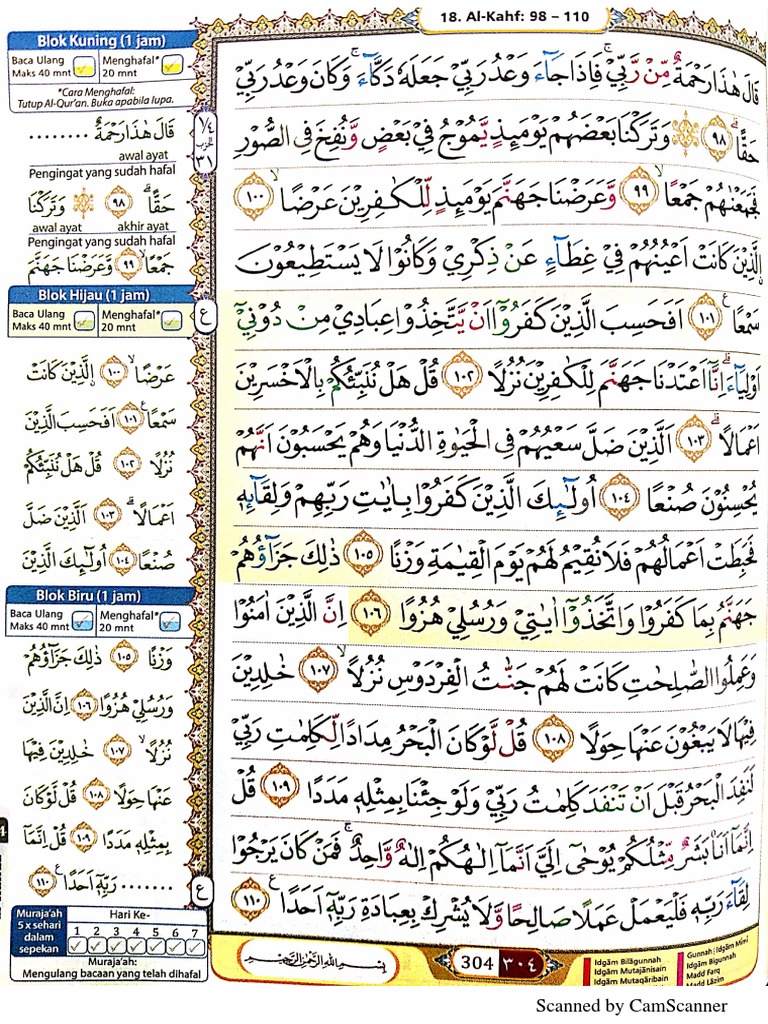 18. Al-Kahf: 98 – 110
قَالَ هٰذَا رَحْمَةٌ مِّنْ رَّبِّيْۚ فَاِذَا جَاۤءَ وَعْدُ رَبِّيْ جَعَلَهٗ دَكَّاۤءَۚ وَكَانَ وَعْدُ رَبِّيْ
حَقًّاۗ ٩٨ ۞ وَتَرَكْنَا بَعْضَهُمْ يَوْمَىِٕذٍ يَّمُوْجُ فِيْ بَعْضٍ وَّنُفِخَ فِى الصُّوْرِ
فَجَمَعْنٰهُمْ جَمْعًاۙ ٩٩ وَّعَرَضْنَا جَهَنَّمَ يَوْمَىِٕذٍ لِّلْكٰفِرِيْنَ عَرْضًاۙ ١٠٠
ۨالَّذِيْنَ كَانَتْ اَعْيُنُهُمْ فِيْ غِطَاۤءٍ عَنْ ذِكْرِيْ وَكَانُوْا لَا يَسْتَطِيْعُوْنَ
سَمْعًاࣖ ١٠١ اَفَحَسِبَ الَّذِيْنَ كَفَرُوْٓا اَنْ يَّتَّخِذُوْا عِبَادِيْ مِنْ دُوْنِيْٓ
اَوْلِيَاۤءَۗ اِنَّآ اَعْتَدْنَا جَهَنَّمَ لِلْكٰفِرِيْنَ نُزُلًا ١٠٢ قُلْ هَلْ نُنَبِّئُكُمْ بِالْاَخْسَرِيْنَ
اَعْمَالًاۗ ١٠٣ اَلَّذِيْنَ ضَلَّ سَعْيُهُمْ فِى الْحَيٰوةِ الدُّنْيَا وَهُمْ يَحْسَبُوْنَ اَنَّهُمْ
يُحْسِنُوْنَ صُنْعًا ١٠٤ اُولٰۤىِٕكَ الَّذِيْنَ كَفَرُوْا بِاٰيٰتِ رَبِّهِمْ وَلِقَاۤىِٕهٖ
فَحَبِطَتْ اَعْمَالُهُمْ فَلَا نُقِيْمُ لَهُمْ يَوْمَ الْقِيٰمَةِ وَزْنًا ١٠٥ ذٰلِكَ جَزَاۤؤُهُمْ
جَهَنَّمُ بِمَا كَفَرُوْا وَاتَّخَذُوْٓا اٰيٰتِيْ وَرُسُلِيْ هُزُوًا ١٠٦ اِنَّ الَّذِيْنَ اٰمَنُوْا
وَعَمِلُوا الصّٰلِحٰتِ كَانَتْ لَهُمْ جَنّٰتُ الْفِرْدَوْسِ نُزُلًاۙ ١٠٧ خٰلِدِيْنَ
فِيْهَا لَا يَبْغُوْنَ عَنْهَا حِوَلًا ١٠٨ قُلْ لَّوْ كَانَ الْبَحْرُ مِدَادًا لِّكَلِمٰتِ رَبِّيْ
لَنَفِدَ الْبَحْرُ قَبْلَ اَنْ تَنْفَدَ كَلِمٰتُ رَبِّيْ وَلَوْ جِئْنَا بِمِثْلِهٖ مَدَدًا ١٠٩ قُلْ
اِنَّمَآ اَنَا۠ بَشَرٌ مِّثْلُكُمْ يُوْحٰىٓ اِلَيَّ اَنَّمَآ اِلٰهُكُمْ اِلٰهٌ وَّاحِدٌۚ فَمَنْ كَانَ يَرْجُوْا
لِقَاۤءَ رَبِّهٖ فَلْيَعْمَلْ عَمَلًا صَالِحًا وَّلَا يُشْرِكْ بِعِبَادَةِ رَبِّهٖٓ اَحَدًاࣖ ١١٠
Blok Kuning (1 jam)
Baca Ulang Maks 40 mnt
Menghafal* 20 mnt
*Cara Menghafal:
Tutup Al-Qur'an. Buka apabila lupa.
قَالَ هٰذَا رَحْمَةٌ ........
awal ayat
Pengingat yang sudah hafal
حَقًّاۗ ٩٨ ۞ وَتَرَكْنَا
awal ayat akhir ayat
Pengingat yang sudah hafal
جَمْعًاۙ ٩٩ وَّعَرَضْنَا جَهَنَّمَ
١/٤
الحزب
٣١
Blok Hijau (1 jam)
Baca Ulang Maks 40 mnt
Menghafal* 20 mnt
ع
عَرْضًاۙ ١٠٠ ۨالَّذِيْنَ كَانَتْ
سَمْعًاࣖ ١٠١ اَفَحَسِبَ الَّذِيْنَ
نُزُلًا ١٠٢ قُلْ هَلْ نُنَبِّئُكُمْ
اَعْمَالًاۗ ١٠٣ اَلَّذِيْنَ ضَلَّ
صُنْعًا ١٠٤ اُولٰۤىِٕكَ الَّذِيْنَ
Blok Biru (1 jam)
Baca Ulang Maks 40 mnt
Menghafal* 20 mnt
وَزْنًا ١٠٥ ذٰلِكَ جَزَاۤؤُهُمْ
وَرُسُلِيْ هُزُوًا ١٠٦ اِنَّ الَّذِيْنَ
نُزُلًاۙ ١٠٧ خٰلِدِيْنَ فِيْهَا
عَنْهَا حِوَلًا ١٠٨ قُلْ لَّوْ كَانَ
بِمِثْلِهٖ مَدَدًا ١٠٩ قُلْ اِنَّمَآ
........ رَبِّهٖٓ اَحَدًاࣖ ١١٠
ع
Muraja'ah 5 x sehari dalam sepekan
Hari Ke-
1 2 3 4 5 6 7
Muraja'ah:
Mengulang bacaan yang telah dihafal
بِسْمِ اللّٰهِ الرَّحْمٰنِ الرَّحِيْمِ
304 ٣٠٤
Idgām Bilāgunnah
Idgām Mutajānisain
Idgām Mutaqāribain
Gunnah | Idgām Mīmī
Idgām Bigunnah
Madd Farq
Madd Lāzim
Scanned by CamScanner